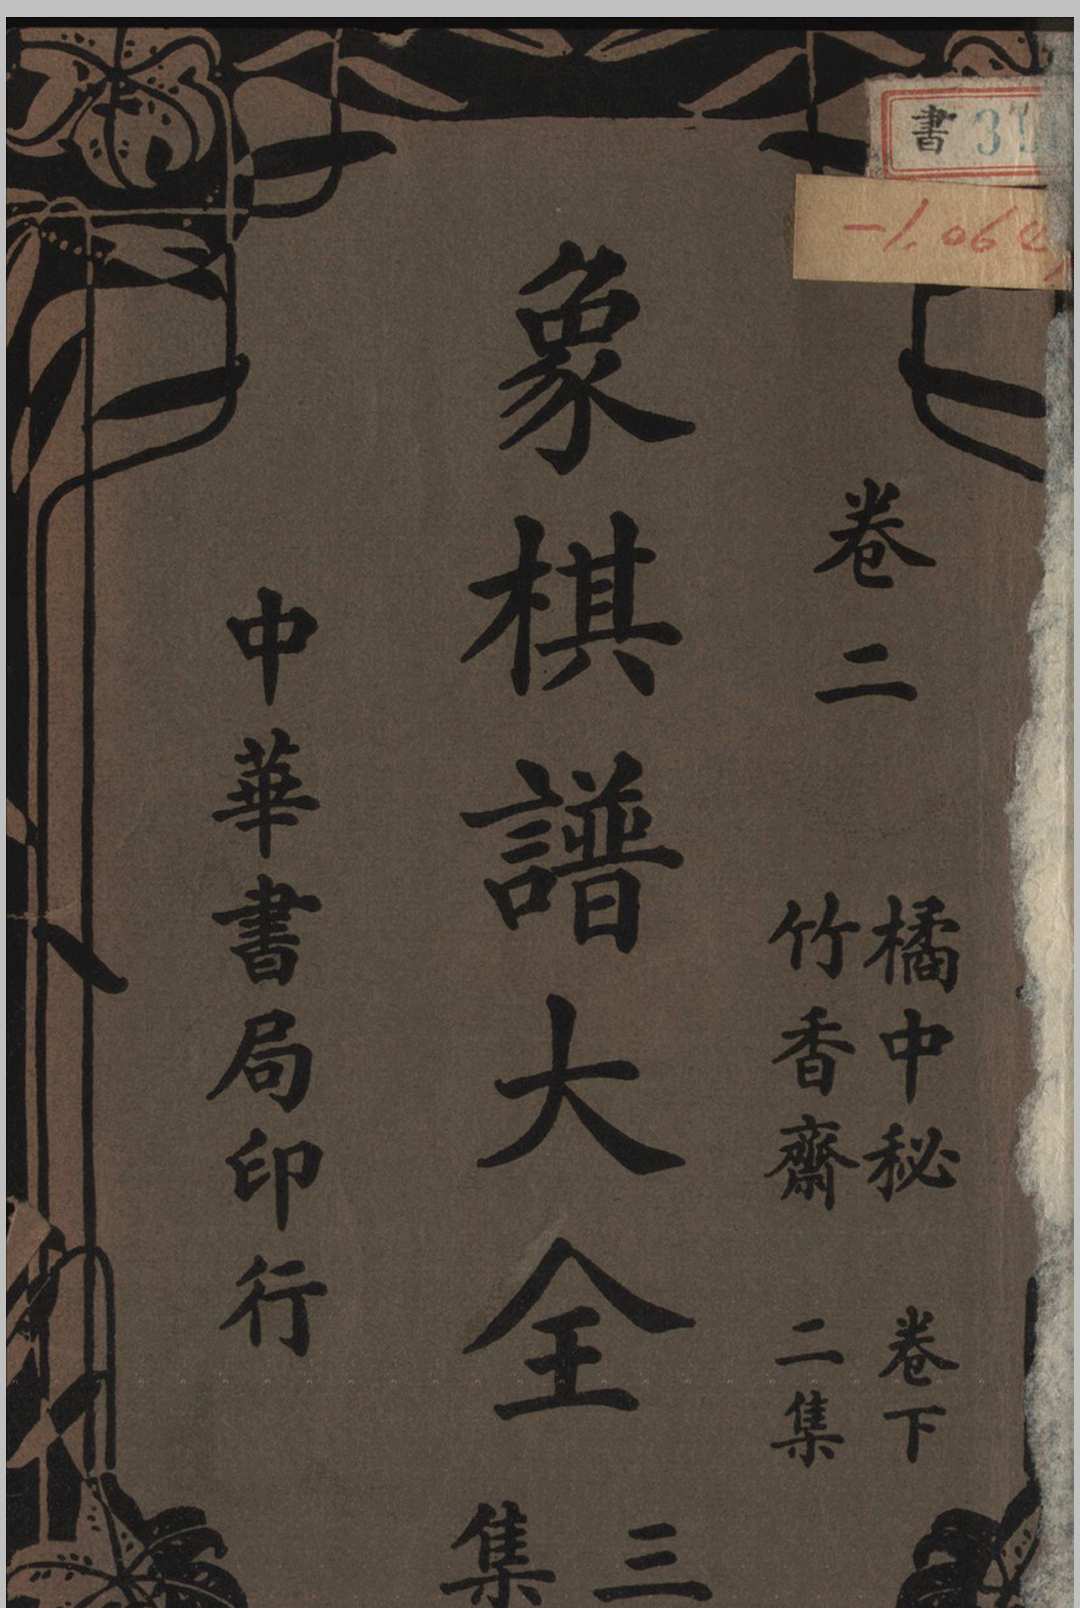 書
-1.062
卷二
橘中秘 卷下
竹香齋 二集
象棋譜大全
三集
中華書局印行